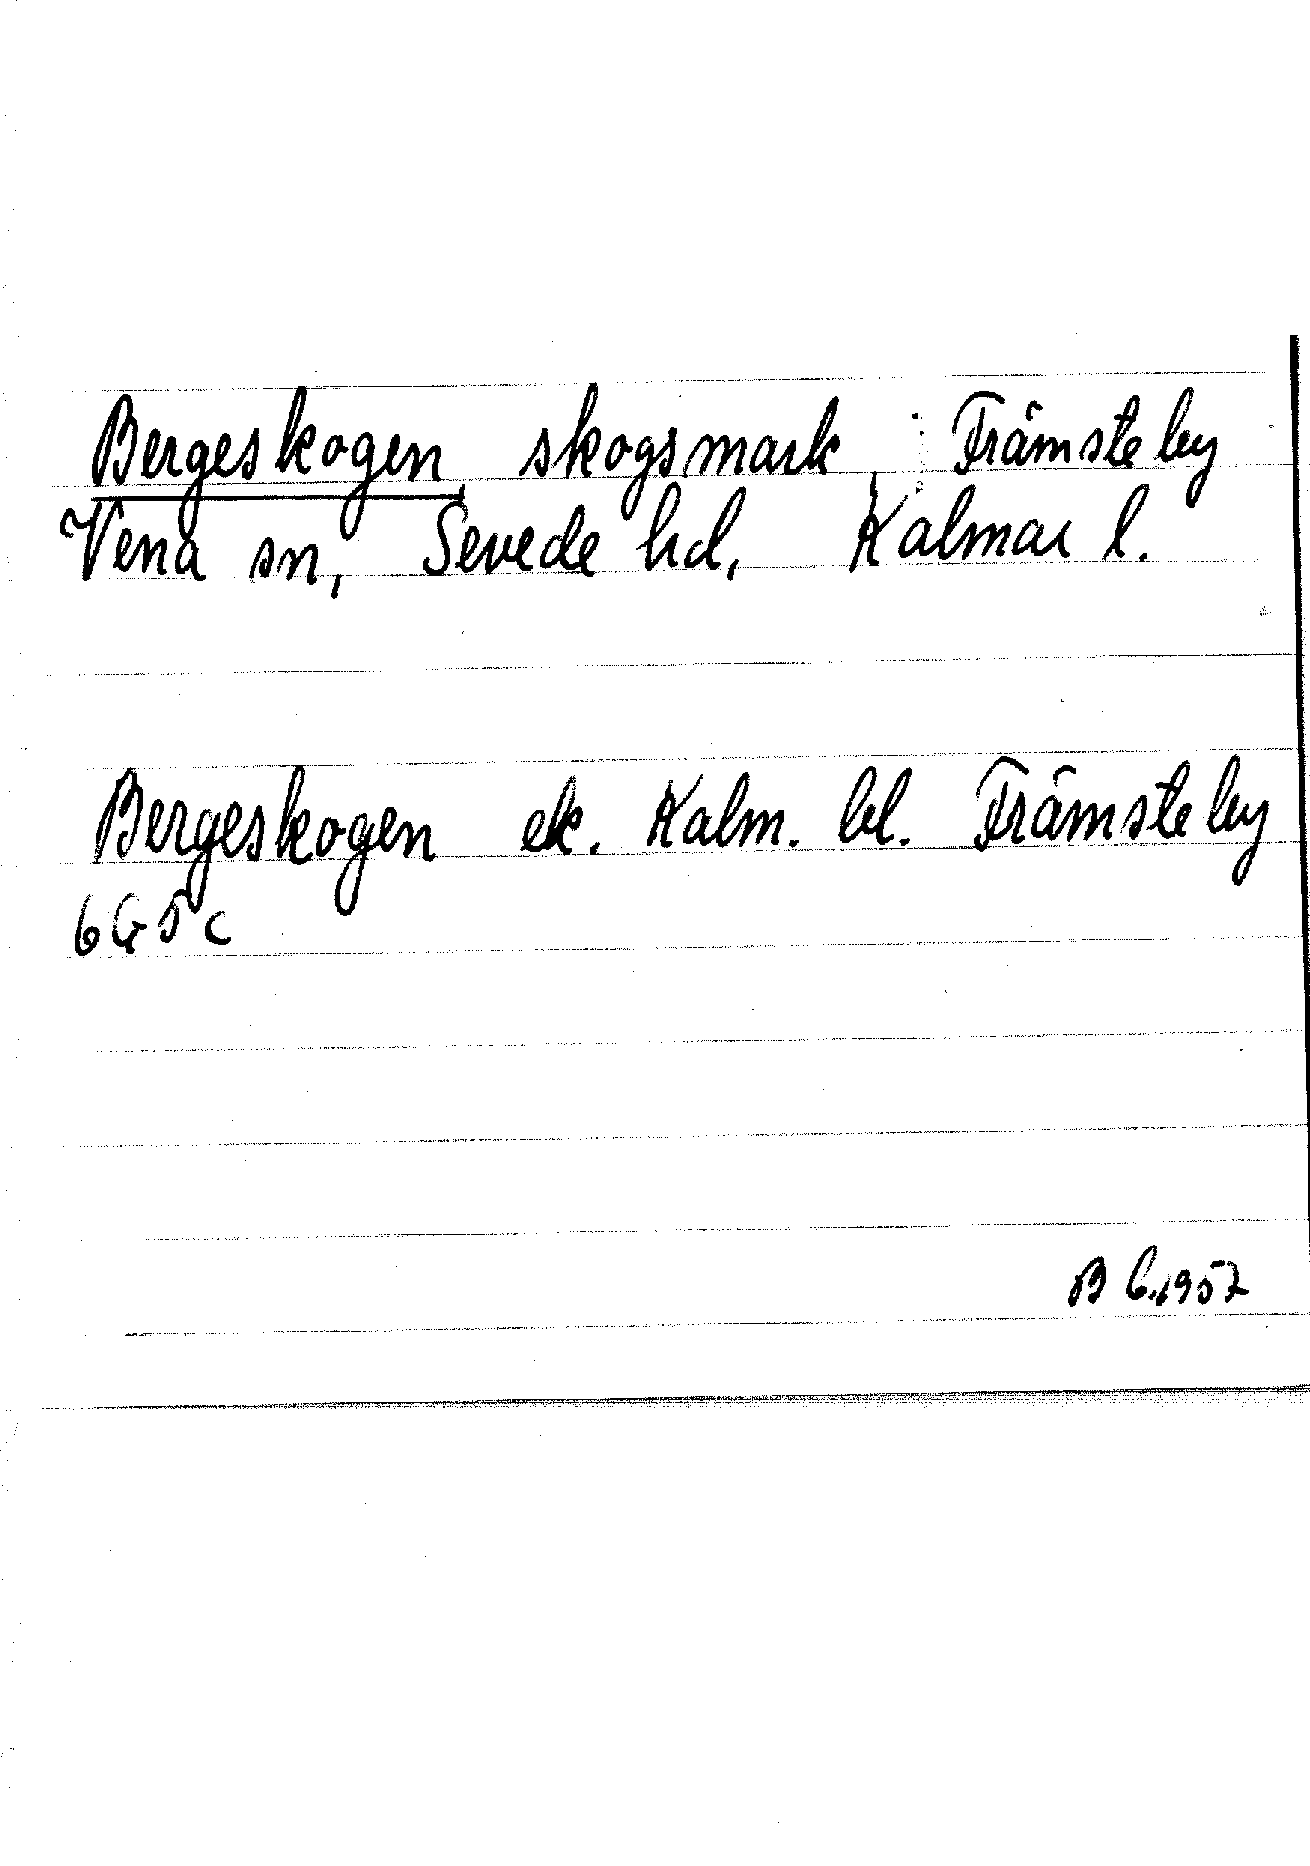 Bergeskogen, skogsmark, Främsteby
Vena sn, Sevede hd, Kalmar l.
Bergeskogen ek. Kalm. bl. Främsteby
6G5c
B 6.1957